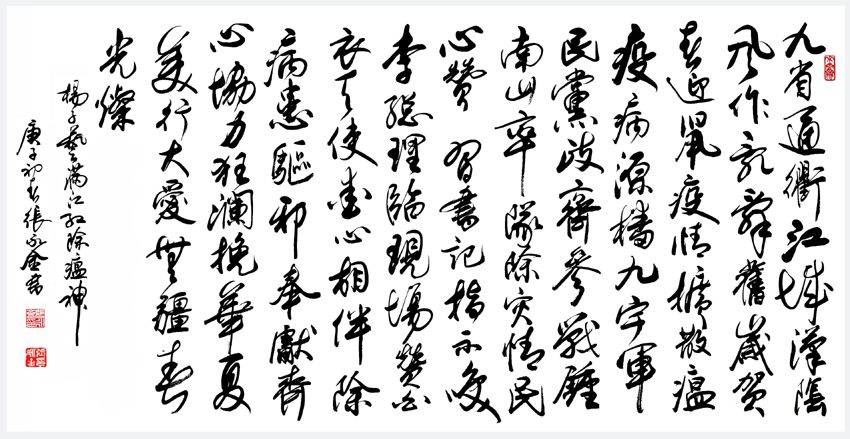 九省通衢江城漢陰
风作乱辞舊歲賀
春迎鼠疫情擴散瘟
疫病源播九宇軍
民黨政齊參戰鍾
南山率隊除灾情民
心贊習書記指示
李總理臨現場贊白
衣天使愛心相伴除
病患驅邪奉獻齊
心協力狂瀾挽華夏
美行大愛無疆春
光燦
楊子藝滿江红除瘟神
庚子初春張永金書